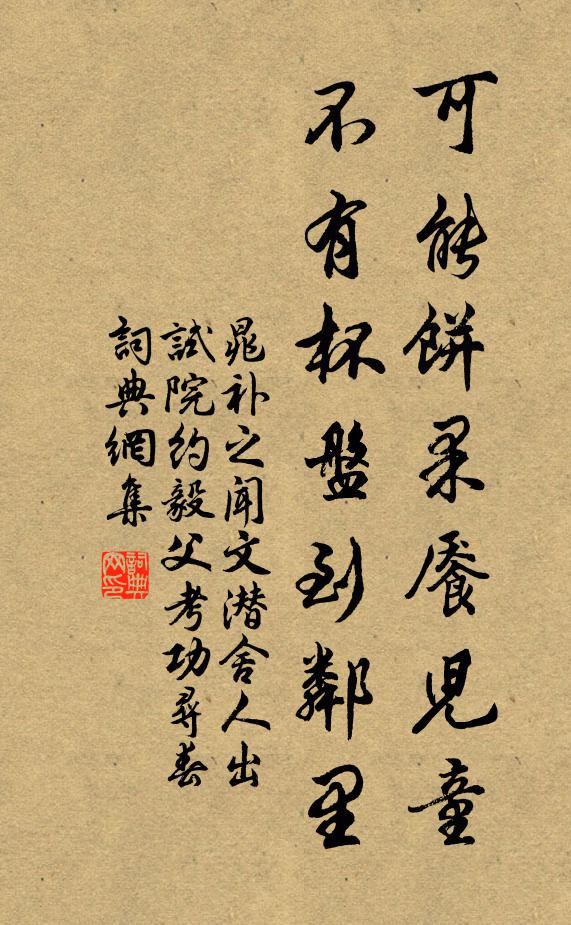 可能餅果饜児童
不有杯盤到鄰里
晁补之聞文潜舍人出
試院約毅父考功尋春
詞典網集
詞典网印